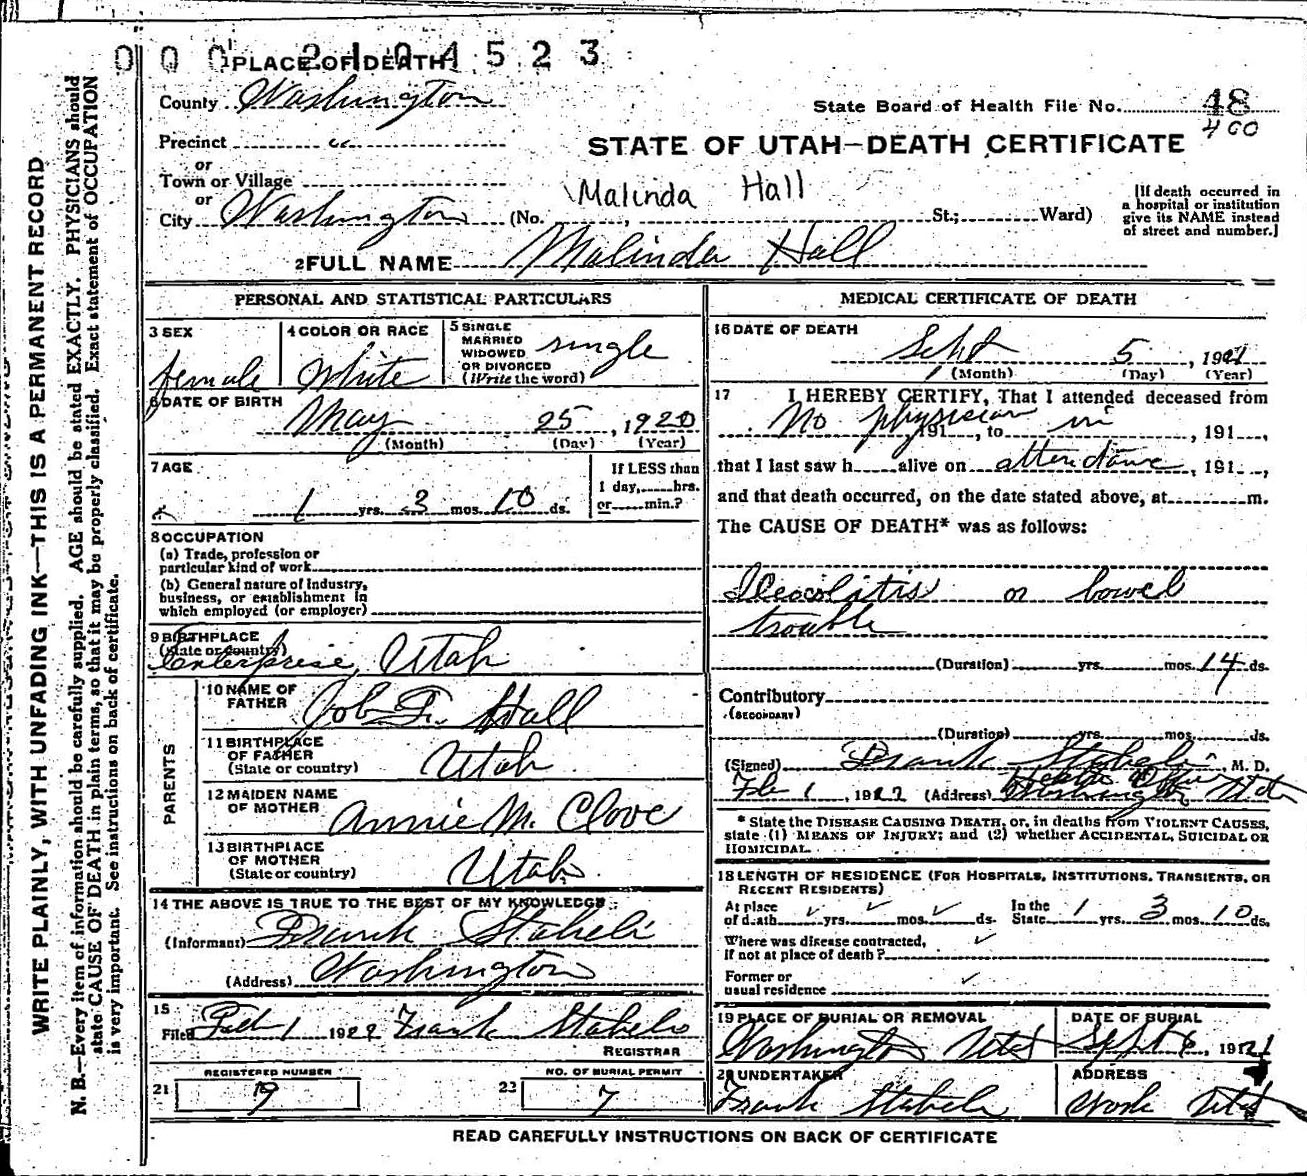 0 0 0 2 1 0 4 5 2 3
PLACE OF DEATH
County Washington
State Board of Health File No. 48
400
Precinct "
STATE OF UTAH—DEATH CERTIFICATE
or
Town or Village
or
Malinda Hall
City Washington (No. , St.; Ward)
[If death occurred in
a hospital or institution
give its NAME instead
of street and number.]
2 FULL NAME Malinda Hall
PERSONAL AND STATISTICAL PARTICULARS
3 SEX
female
4 COLOR OR RACE
White
5 SINGLE
MARRIED
WIDOWED
OR DIVORCED
(Write the word)
single
6 DATE OF BIRTH
May 25, 1920
(Month) (Day) (Year)
7 AGE
1 yrs. 3 mos. 10 ds.
If LESS than
1 day, hrs.
or min.?
8 OCCUPATION
(a) Trade, profession or
particular kind of work
(b) General nature of Industry,
business, or establishment in
which employed (or employer)
9 BIRTHPLACE
(State or country)
Enterprise, Utah
PARENTS
10 NAME OF
FATHER
Job F. Hall
11 BIRTHPLACE
OF FATHER
(State or country)
Utah
12 MAIDEN NAME
OF MOTHER
Annie M. Clove
13 BIRTHPLACE
OF MOTHER
(State or country)
Utah
14 THE ABOVE IS TRUE TO THE BEST OF MY KNOWLEDGE
(Informant) Frank Staheli
(Address) Washington
15
Filed Feb 1 1922 Frank Staheli
REGISTRAR
REGISTERED NUMBER
21 9
NO. OF BURIAL PERMIT
22 7
MEDICAL CERTIFICATE OF DEATH
16 DATE OF DEATH
Sept 5, 1921
(Month) (Day) (Year)
17 I HEREBY CERTIFY, That I attended deceased from
No physician in
, 191 , to , 191 ,
that I last saw h alive on attendance, 191 ,
and that death occurred, on the date stated above, at m.
The CAUSE OF DEATH* was as follows:
Ileocolitis or bowel
trouble
(Duration) yrs. mos. 14 ds.
Contributory
(SECONDARY)
(Duration) yrs. mos. ds.
(Signed) Frank Staheli M. D.
Feb 1, 1922 (Address) Washington Utah
* State the DISEASE CAUSING DEATH, or, in deaths from VIOLENT CAUSES,
state (1) MEANS OF INJURY; and (2) whether ACCIDENTAL, SUICIDAL OR
HOMICIDAL.
18 LENGTH OF RESIDENCE (FOR HOSPITALS, INSTITUTIONS, TRANSIENTS, OR
RECENT RESIDENTS)
At place
of death yrs. mos. ds.
In the
State 1 yrs. 3 mos. 10 ds.
Where was disease contracted,
if not at place of death?
Former or
usual residence
19 PLACE OF BURIAL OR REMOVAL
Washington Utah
DATE OF BURIAL
Sept 6, 1921
20 UNDERTAKER
Frank Staheli
ADDRESS
Wash Utah
READ CAREFULLY INSTRUCTIONS ON BACK OF CERTIFICATE
WRITE PLAINLY, WITH UNFADING INK—THIS IS A PERMANENT RECORD
N. B.—Every item of information should be carefully supplied. AGE should be stated EXACTLY. PHYSICIANS should
state CAUSE OF DEATH in plain terms, so that it may be properly classified. Exact statement of OCCUPATION
is very important. See instructions on back of certificate.